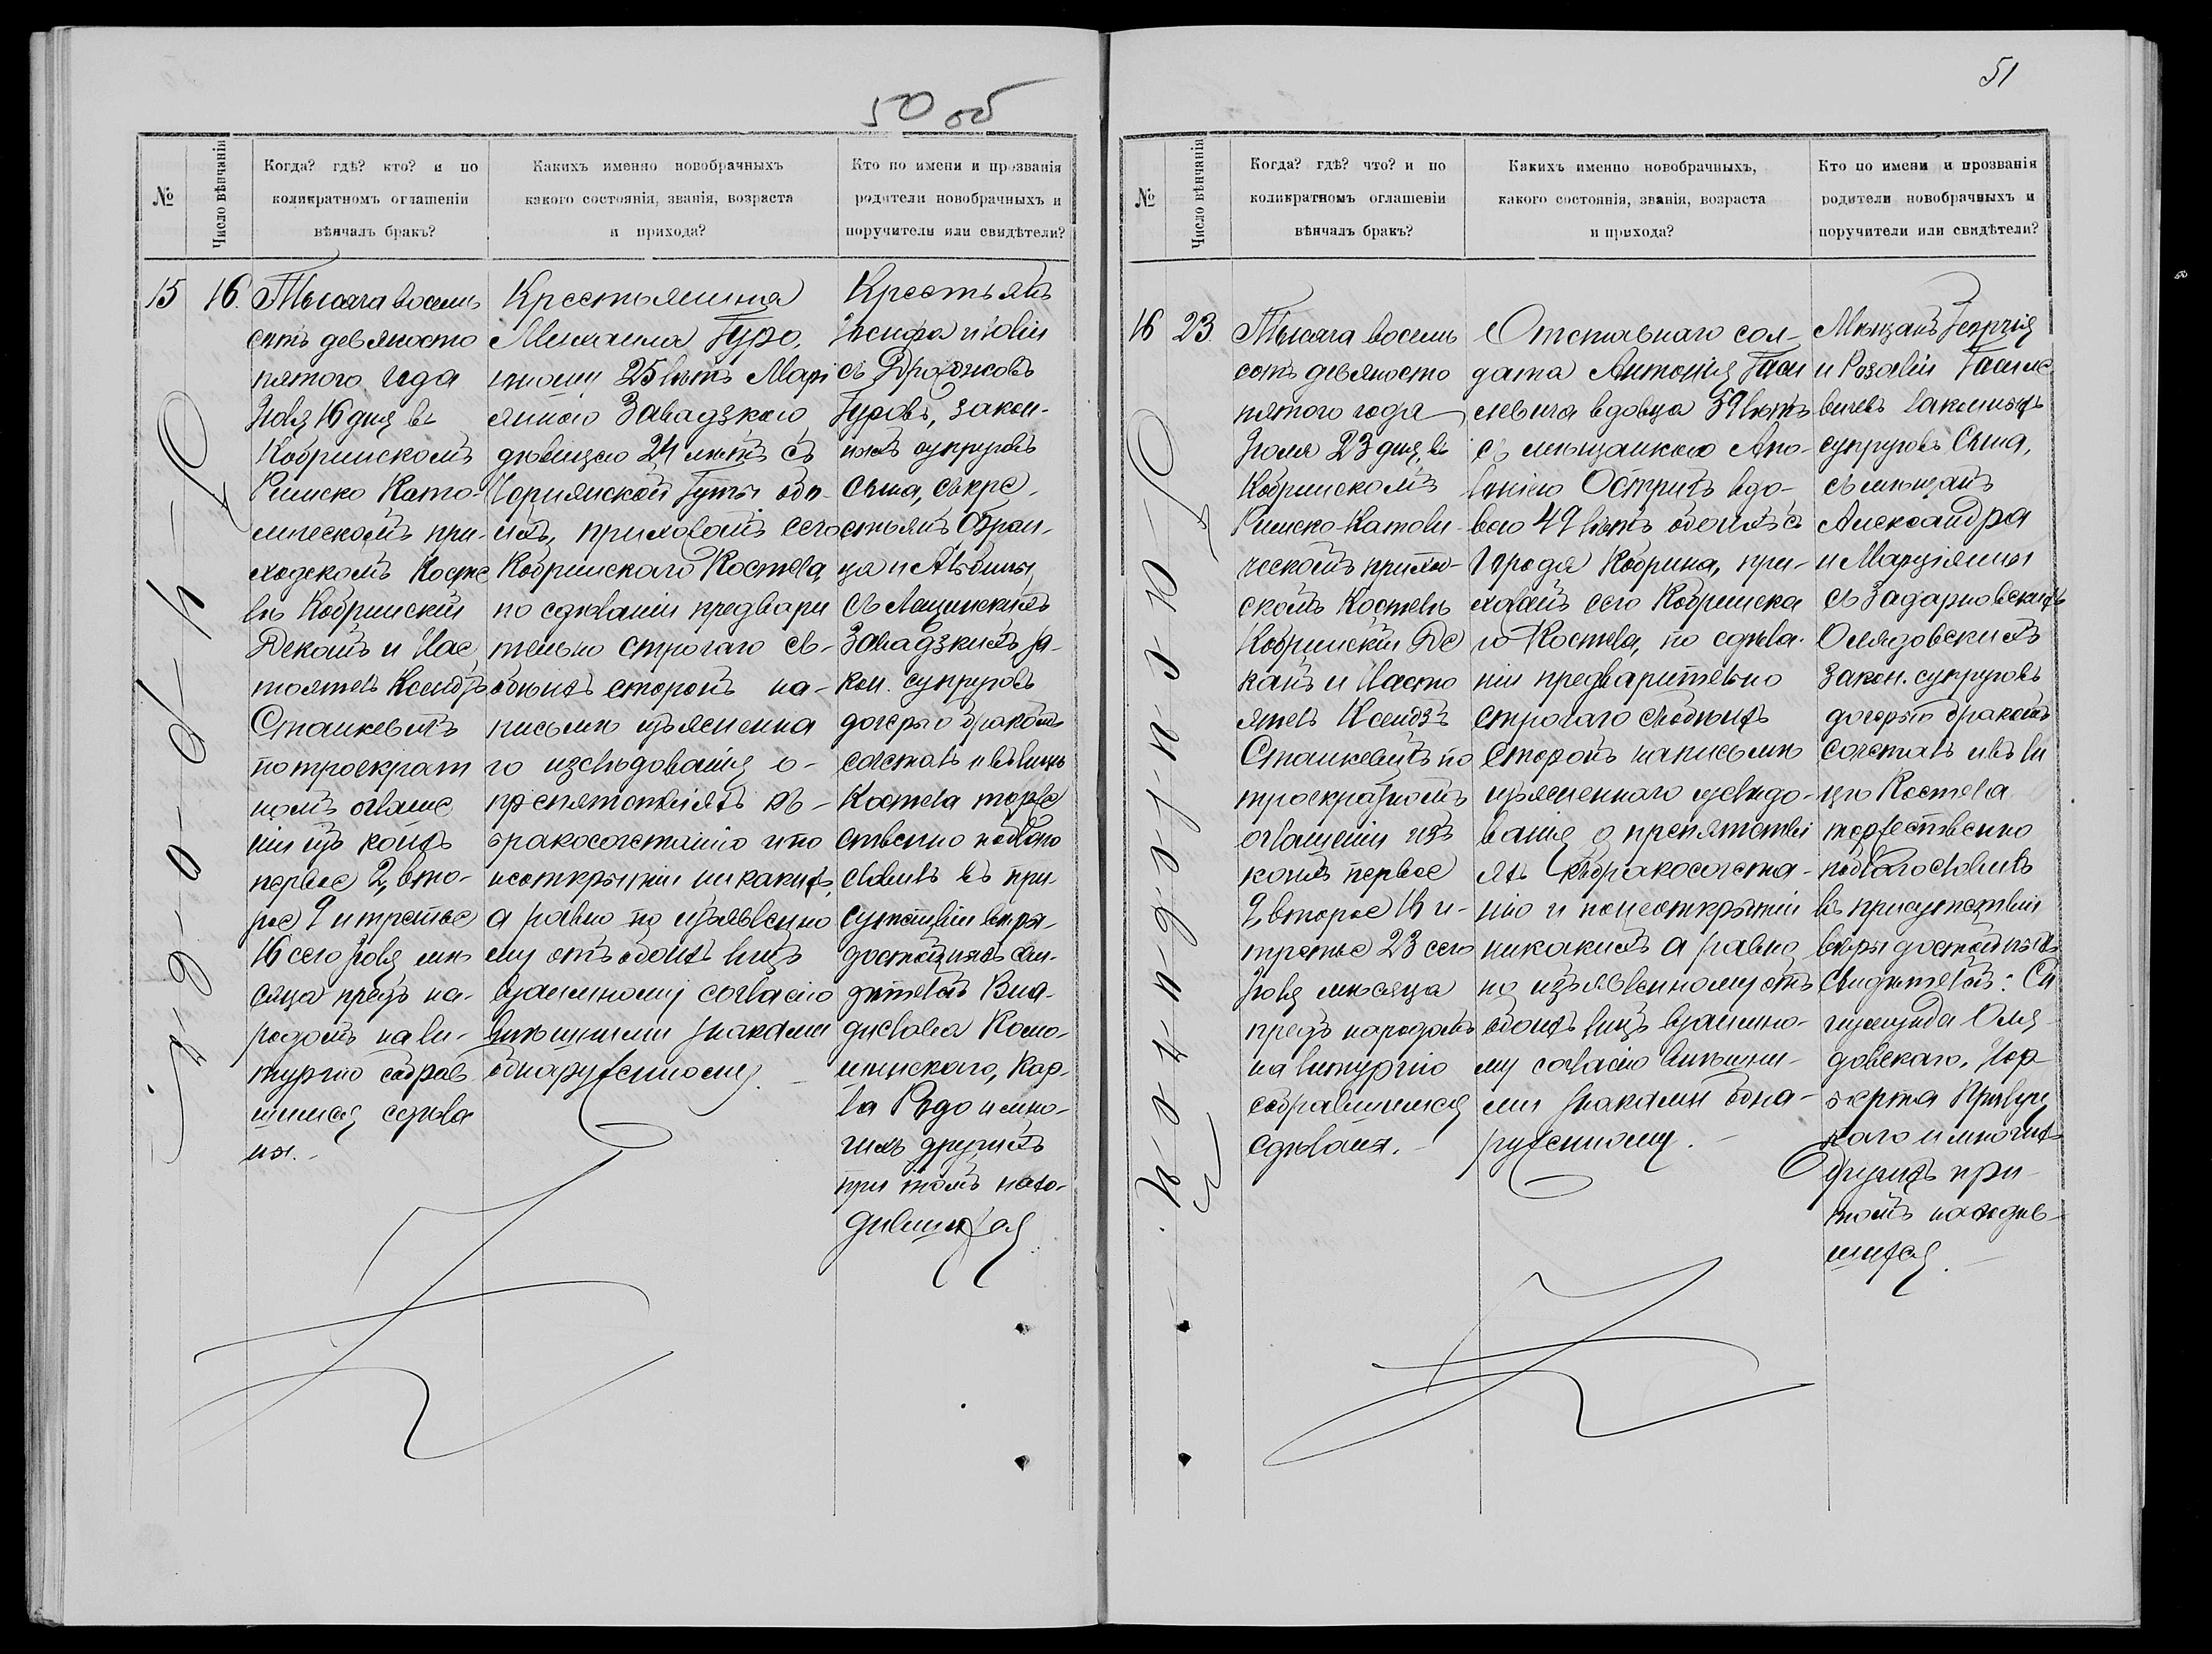 50 об
№
Число вѣнчанія
Когда? гдѣ? кто? и по
коликратномъ оглашеніи
вѣнчалъ бракъ?
Какихъ именно новобрачныхъ
какого состоянія, званія, возраста
и прихода?
Кто по имени и прозванія
родители новобрачныхъ и
поручители или свидѣтели?
15
16.
Тысяча восемь
сотъ девяносто
пятого года
Іюля 16 дня въ
Кобринскомъ
Римско Като-
лическомъ при-
ходскомъ Косте
лѣ Кобринскій
Деканъ и Нас
тоятель Ксендзъ
Станкевичъ
по троекрат
номъ оглаше
ніи изъ коихъ
первое 2, вто-
рое 9 и третье
16 сего Іюля мѣ
сяца предъ на-
родомъ на ли-
тургію собрав
шимся сдѣла
ны.
Крестьянина
Михаила Гуро,
юношу 25 лѣтъ Марі
янною Завадзкою,
дѣвицею 24 лѣтъ съ
Чорнянской Гуты обо-
ихъ, прихожанъ сего
Кобринскаго Костела
по сдѣланіи предвари
тельно строгаго съ
обоихъ сторонъ на-
письмѣ изъясненна
го изслѣдованія о
препятствіяхъ къ
бракосочетанію и по
неоткрытіи никакихъ,
а равно по изъявленно
му отъ обоихъ лицъ
взаимному согласію
внѣшними знаками
обнаруженному.
Крестьянъ
Іосифа и Юліи
съ
Гуровъ, закон-
ныхъ супруговъ
Сына, съ кре
стьянъ Фран-
ца и Альбины
съ Лещинскихъ
Завадзкихъ за-
кон. супруговъ
дочерью бракомъ
сочеталъ и въ лицѣ
Костела торже
ственно поблаго
словилъ въ при-
сутствіи вѣры
достойныхъ сви-
дѣтелей Вла-
дислава Коло-
минскаго, Кар-
ла Рудо и мно-
гихъ другихъ
при томъ нахо-
дившихся
51
№
Число вѣнчанія
Когда? гдѣ? что? и по
коликратномъ оглашеніи
вѣнчалъ бракъ?
Какихъ именно новобрачныхъ,
какого состоянія, званія, возраста
и прихода?
Кто по имени и прозванія
родители новобрачныхъ и
поручители или свидѣтели?
16
23
Тысяча восемь
сотъ девяносто
пятого года
Іюля 23 дня, въ
Кобринскомъ
Римско-Католи-
ческомъ приход-
скомъ Костелѣ
Кобринскій Де
канъ и Насто
ятель Ксендзъ
Станкевичъ по
троекратномъ
оглашеніи изъ
коихъ первое
9, второе 16 и
третье 23 сего
Іюля мѣсяца
предъ народомъ
на литургію
собравшимся
сдѣланы.
Отставнаго сол-
дата Антонія
вдовца 59 лѣтъ
съ мѣщанкою Апо-
лонією вдо-
вою 49 лѣтъ обоихъ съ
Города Кобрина, при-
хожанъ сего Кобринска
го Костела, по сдѣла-
ніи предварительно
строгаго съ обоихъ
сторонъ написьмѣ
изъясненнаго изслѣдо-
ванія о препятстві
яхъ къ бракосочета-
нію и по неоткрытіи
никакихъ а равно
по изъявленному отъ
обоихъ лицъ взаимно-
му согласію внѣшни-
ми знаками обна-
руженному.
Мѣщанъ Георгія
и Розаліи
вичевъ законныхъ
супруговъ Сына,
съ мѣщанъ
Александра
и Марціянны
съ Задарновскихъ
Олядовскихъ
закон. супруговъ
дочерью бракомъ
сочеталъ и въ ли
цѣ Костела
торжественно
поблагословилъ
въ присутствіи
вѣры достойныхъ
Свидѣтелей: Си
гизмунда Оля-
довскаго, Нор-
берта
и многихъ
другихъ при
томъ находив-
шихся.